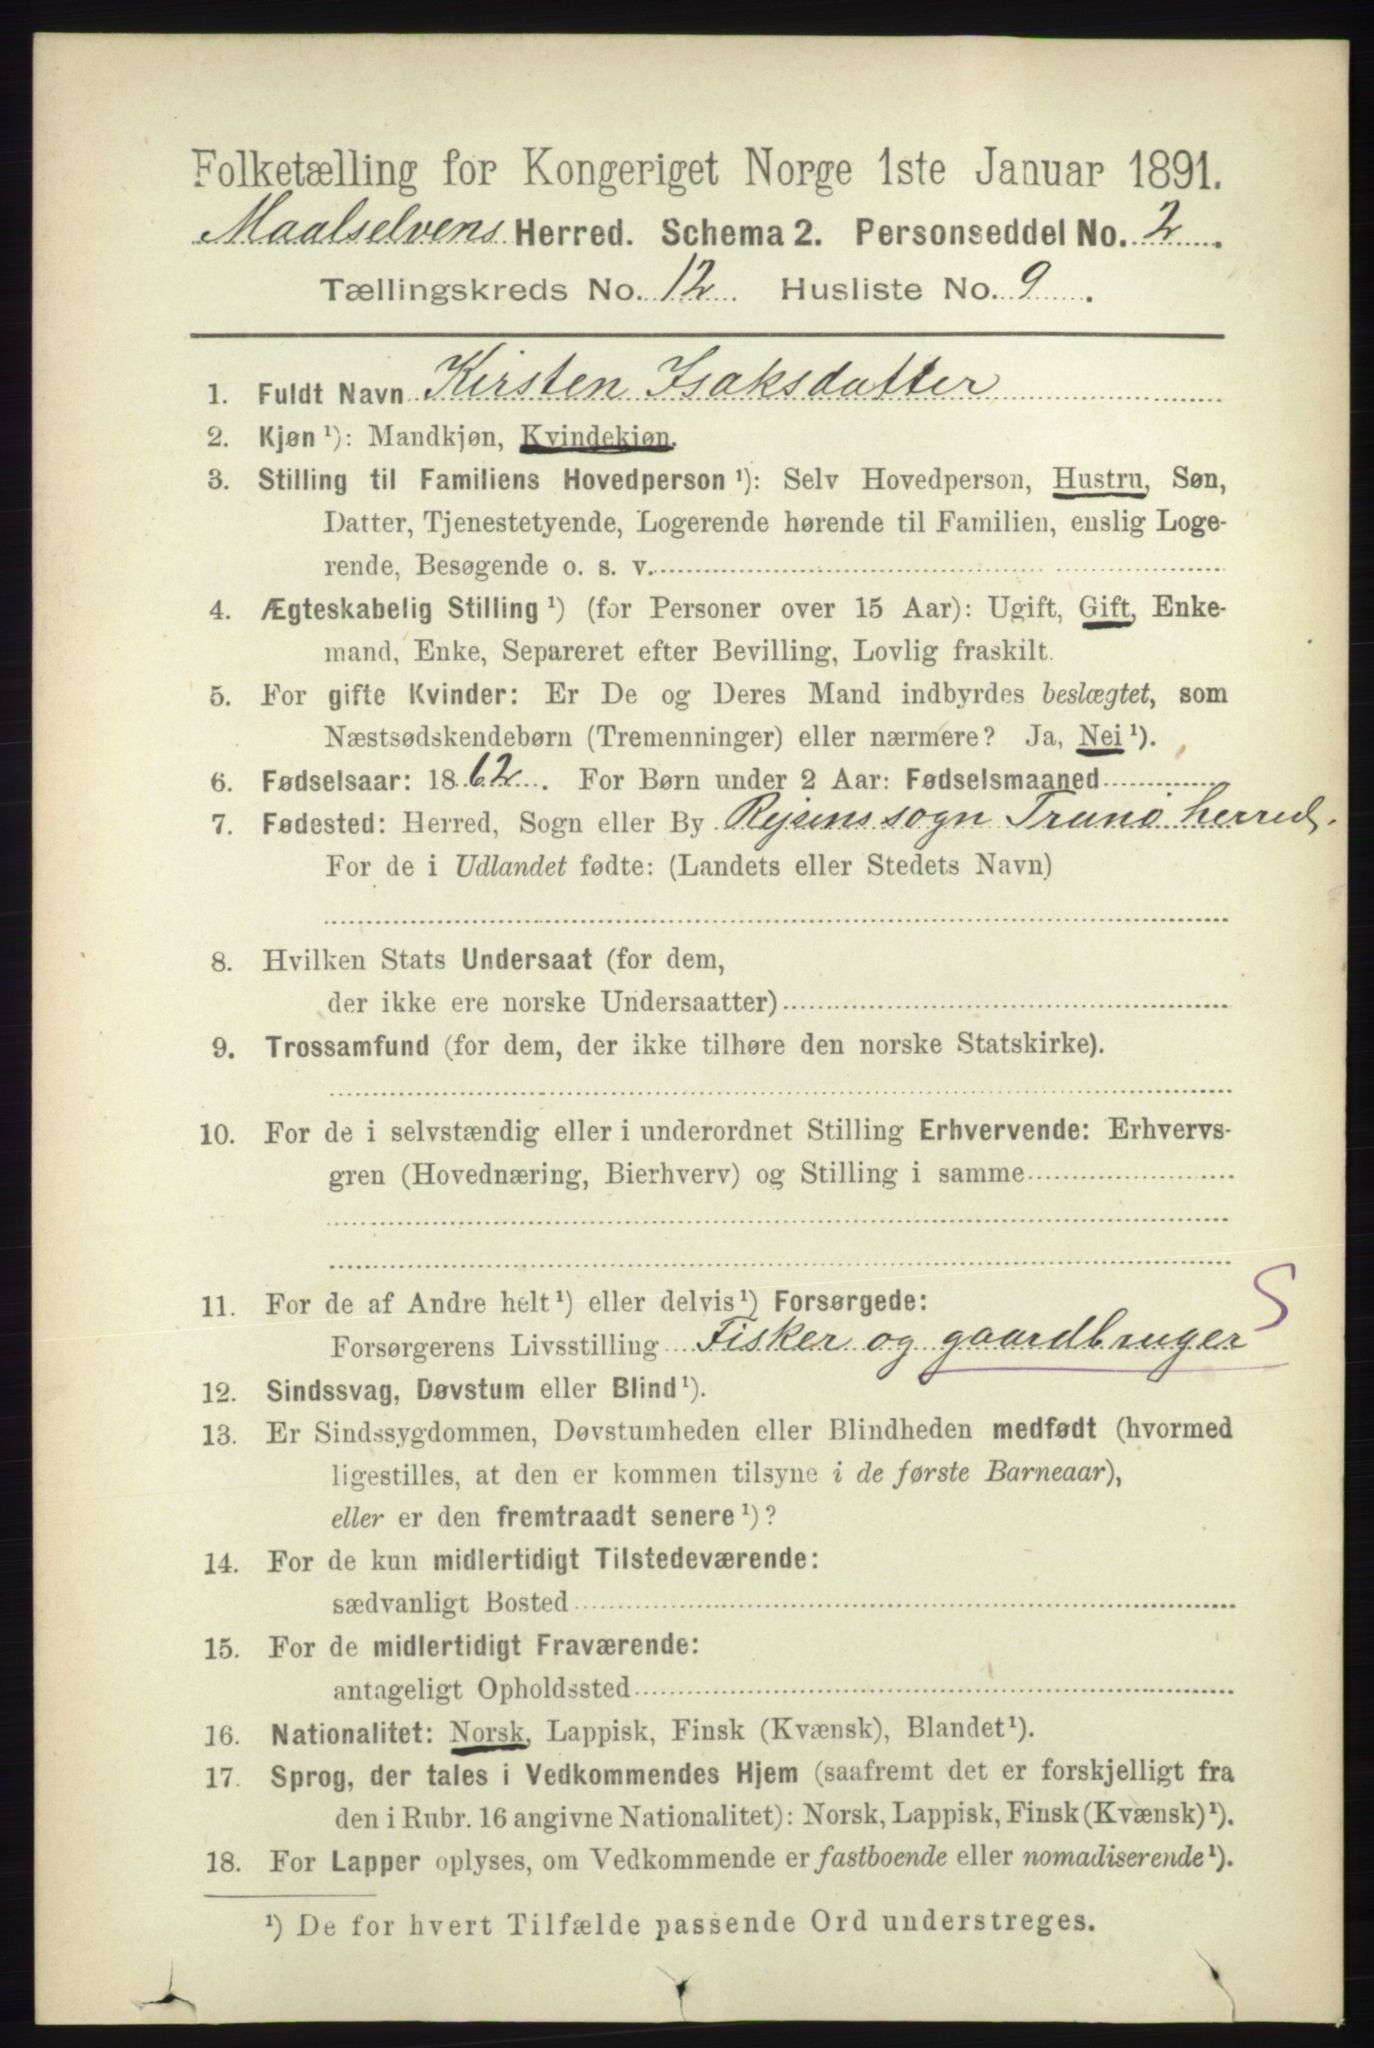 Folketælling for Kongeriget Norge 1ste Januar 1891.
Maalselvens Herred. Schema 2. Personseddel No. 2.
Tællingskreds No. 12. Husliste No. 9.
1. Fuldt Navn Kirsten Isaksdatter
2. Kjøn ¹): Mandkjøn, Kvindekjøn.
3. Stilling til Familiens Hovedperson ¹): Selv Hovedperson, Hustru, Søn,
Datter, Tjenestetyende, Logerende hørende til Familien, enslig Loge-
rende, Besøgende o. s. v.
4. Ægteskabelig Stilling ¹) (for Personer over 15 Aar): Ugift, Gift, Enke-
mand, Enke, Separeret efter Bevilling, Lovlig fraskilt.
5. For gifte Kvinder: Er De og Deres Mand indbyrdes beslægtet, som
Næstsødskendebørn (Tremenninger) eller nærmere? Ja, Nei ¹).
6. Fødselsaar: 1862. For Børn under 2 Aar: Fødselsmaaned
7. Fødested: Herred, Sogn eller By Rejsens sogn Tranø herred.
For de i Udlandet fødte: (Landets eller Stedets Navn)
8. Hvilken Stats Undersaat (for dem,
der ikke ere norske Undersaatter)
9. Trossamfund (for dem, der ikke tilhøre den norske Statskirke).
10. For de i selvstændig eller i underordnet Stilling Erhvervende: Erhvervs-
gren (Hovednæring, Bierhverv) og Stilling i samme
11. For de af Andre helt ¹) eller delvis ¹) Forsørgede: S
Forsørgerens Livsstilling Fisker og gaardbruger
12. Sindssvag, Døvstum eller Blind ¹).
13. Er Sindssygdommen, Døvstumheden eller Blindheden medfødt (hvormed
ligestilles, at den er kommen tilsyne i de første Barneaar),
eller er den fremtraadt senere ¹)?
14. For de kun midlertidigt Tilstedeværende:
sædvanligt Bosted
15. For de midlertidigt Fraværende:
antageligt Opholdssted
16. Nationalitet: Norsk, Lappisk, Finsk (Kvænsk), Blandet ¹).
17. Sprog, der tales i Vedkommendes Hjem (saafremt det er forskjelligt fra
den i Rubr. 16 angivne Nationalitet): Norsk, Lappisk, Finsk (Kvænsk) ¹).
18. For Lapper oplyses, om Vedkommende er fastboende eller nomadiserende ¹).
¹) De for hvert Tilfælde passende Ord understreges.